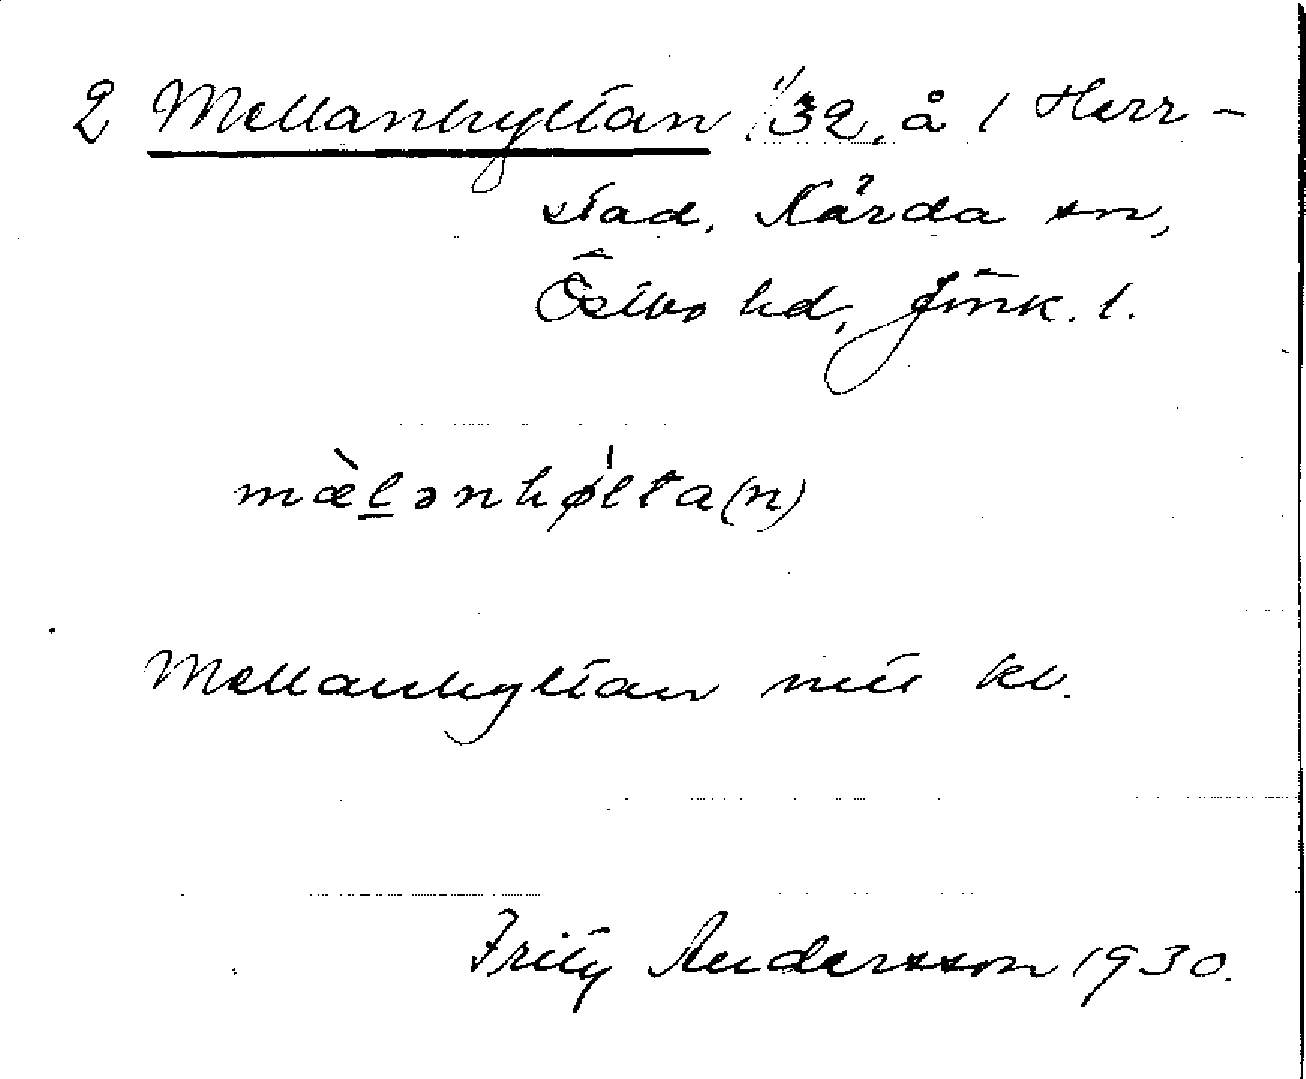 2 Mellanhyltan 1/32, å 1 Herr-
stad, Kärda sn,
Östbo hd, Jönk. l.
mæ̀l̲ənhø̍lta(n)
Mellanhyltan mtl kb.
Fritz Andersson 1930.